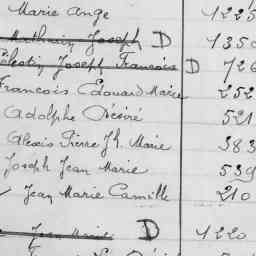 Marie Ange 1225
Mathurin Joseph D 1350
Célestin Joseph Francois D 726
Francois Edouard Marie 252
Adolphe Désiré 521
Alexis Pierre Jh. Marie 383
Joseph Jean Marie 539
Jean Marie Camille 210
Jean Marie D 1220